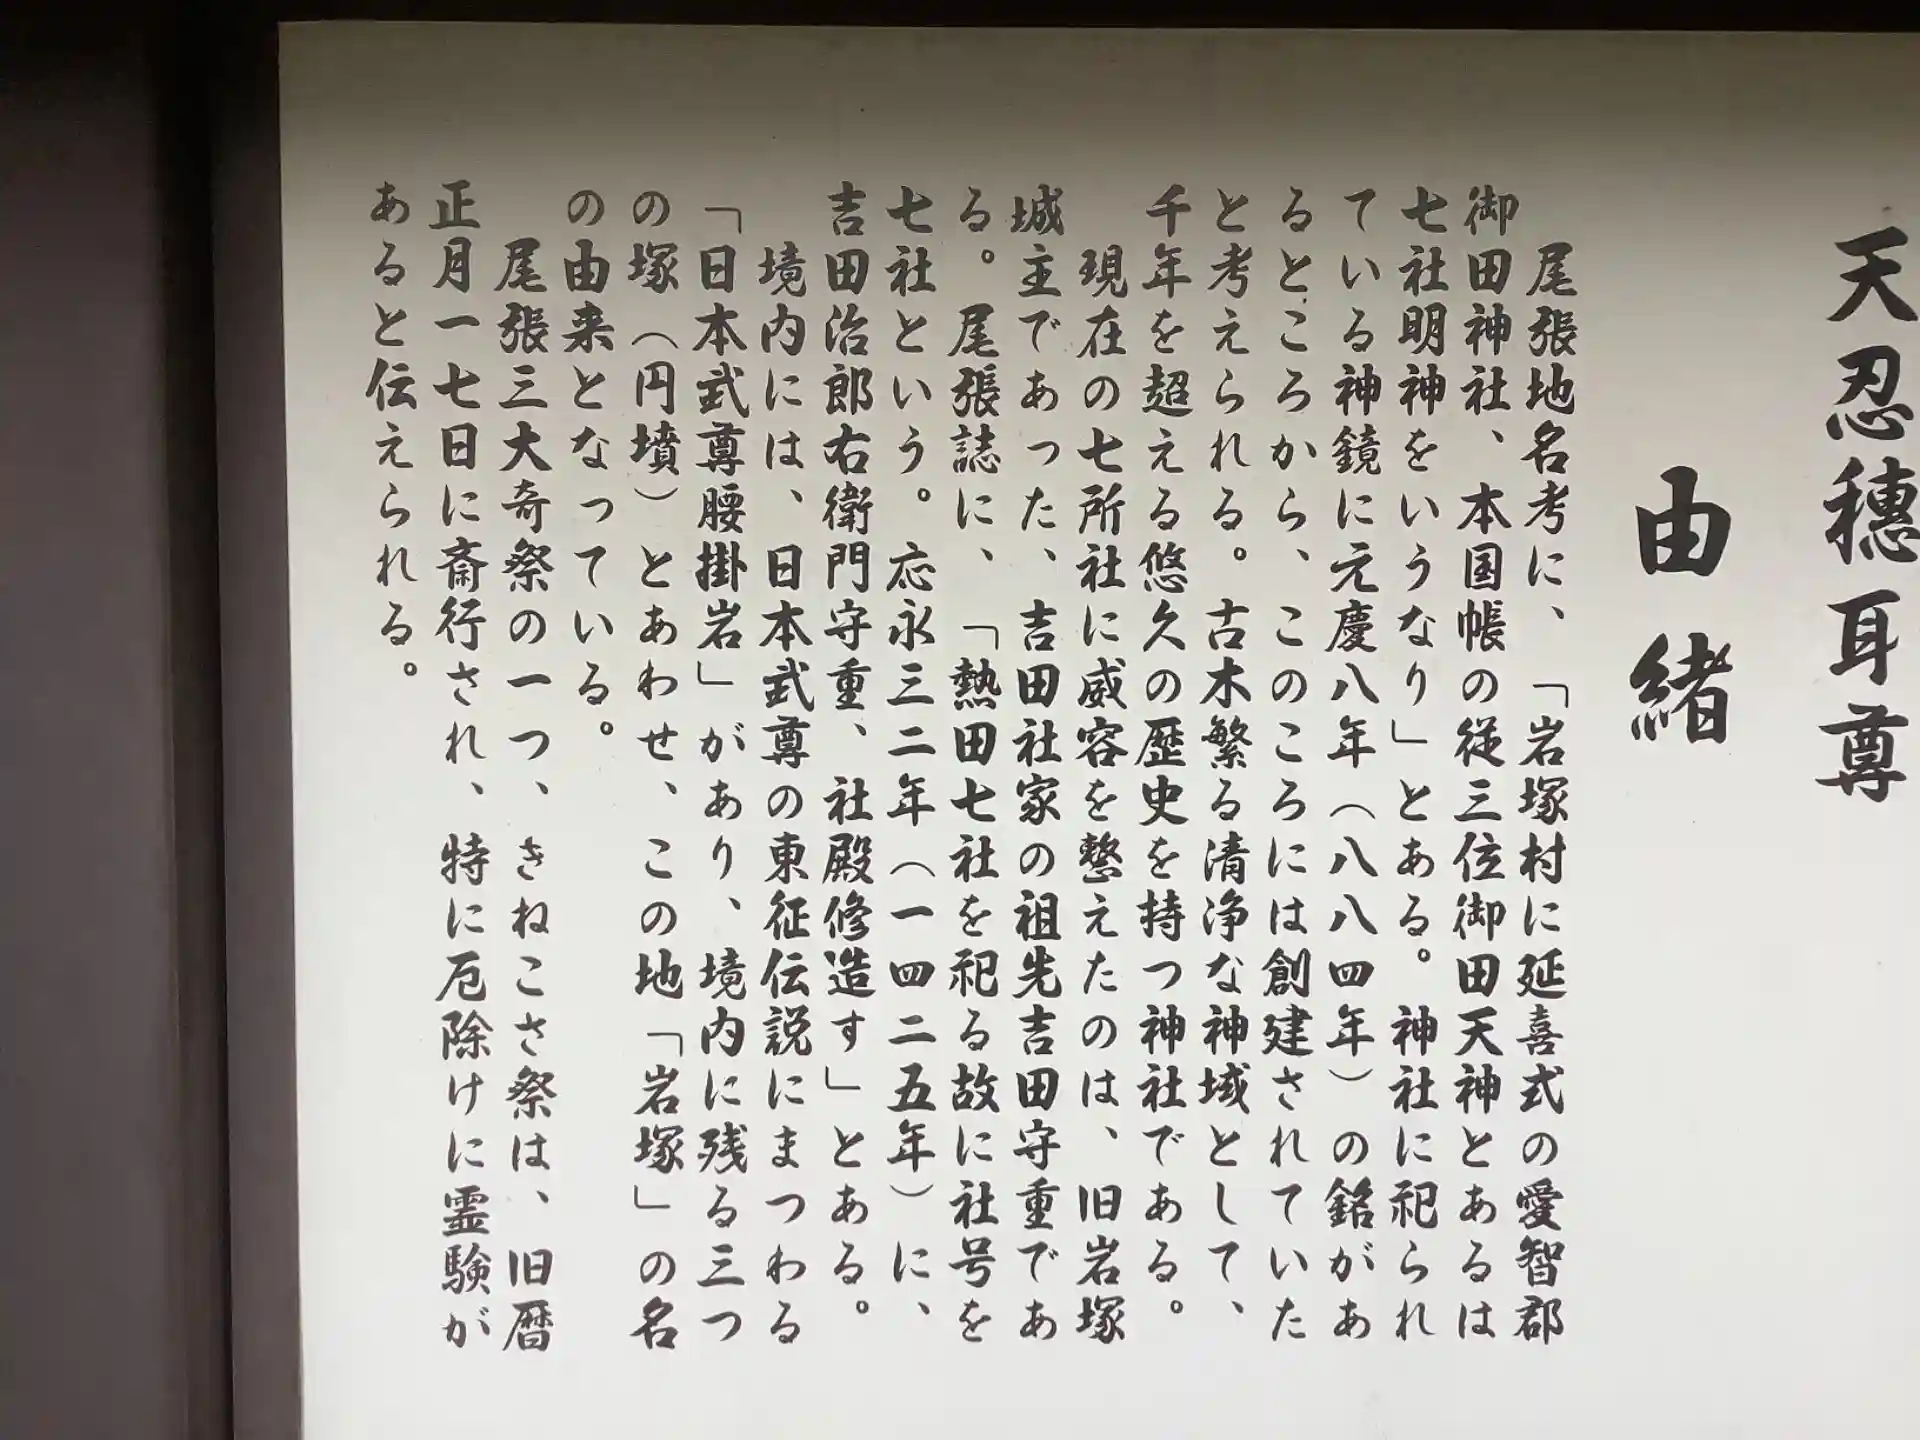 天忍穗耳尊
由緒
尾張地名考に、「岩塚村に延喜式の愛智郡
御田神社、本国帳の従三位御田天神とあるは
七社明神をいうなり」とある。神社に祀られ
ている神鏡に元慶八年（八八四年）の銘があ
るところから、このころには創建されていた
と考えられる。古木繁る清浄な神域として、
千年を超える悠久の歴史を持つ神社である。
現在の七所社に威容を整えたのは、旧岩塚
城主であった、吉田社家の祖先吉田守重であ
る。尾張誌に、「熱田七社を祀る故に社号を
七社という。応永三二年（一四二五年）に、
吉田治郎右衛門守重、社殿修造す」とある。
境内には、日本武尊の東征伝説にまつわる
「日本武尊腰掛岩」があり、境内に残る三つ
の塚（円墳）とあわせ、この地「岩塚」の名
の由来となっている。
尾張三大奇祭の一つ、きねこさ祭は、旧暦
正月一七日に斎行され、特に厄除けに霊験が
あると伝えられる。